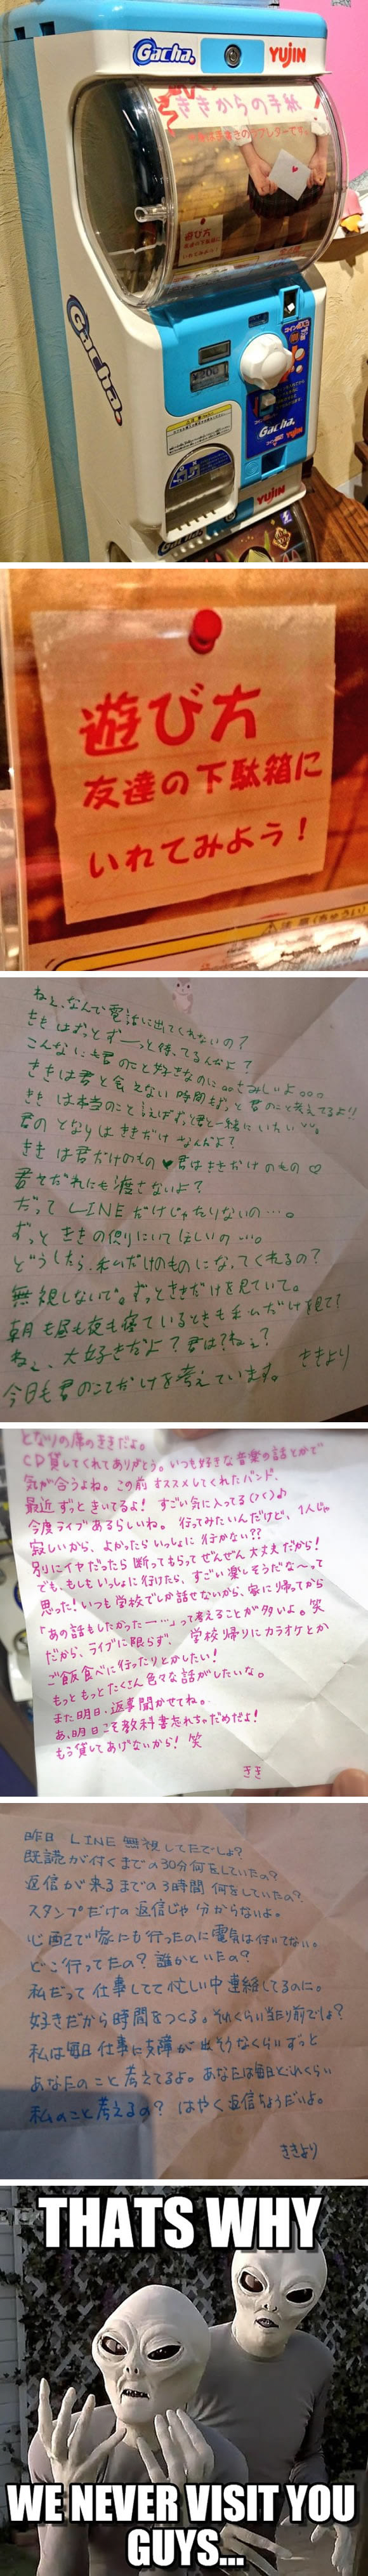 Gacha.
YUJIN
ききからの手紙
遊び方
Gacha.
200
Gacha.
YUJIN
遊び方
友達の下駄箱に
いれてみよう!
ねぇ、なんで電話に出てくれないの?
ききはずっとずーっと待ってるんだよ?
こんなにも君のこと好きなのに。。さみしいよ。。。
ききは君と会えない時間もずっと君のこと考えてるよ!!
ききは本当のこと言えばずっと君と一緒にいたい
君のとなりはききだけなんだよ?
ききは君だけのもの♥君はききだけのもの♡
君をだれにも渡さないよ?
だってLINEだけじゃたりないの…。
ずっとききの側りにいてほしいの…。
どうしたら、私だけのものになってくれるの?
無視しないで。ずっとききだけを見ていて。
朝も昼も夜も寝ているときも私だけを見て?
ねぇ、大好きだよ?君は?ねぇ?
今日も君のことだけを考えています。 ききより
となりの席のききだよ。
CD貸してくれてありがとう。いつも好きな音楽の話とかで
気が合うよね。この前オススメしてくれたバンド、
最近ずっときいてるよ!すごい気に入ってる(>◡<)♪
今度ライブあるらしいね。行ってみたいんだけど、1人じゃ
寂しいから、よかったらいっしょに行かない??
別にイヤだったら断ってもらってぜんぜん大丈夫だから!
でも、もしもいっしょに行けたら、すごい楽しそうだな〜って
思った!いつも学校でしか話せないから、家に帰ってから
「あの話もしたかったー…」って考えることが多いよ。笑
だから、ライブに限らず、学校帰りにカラオケとか
ご飯食べに行ったりとかしたい!
もっともっとたくさん色々な話がしたいな。
また明日、返事聞かせてね。
あ、明日こそ教科書忘れちゃだめだよ!
もう貸してあげないから!笑
きき
昨日 LINE 無視してたでしょ?
既読が付くまでの30分何をしていたの?
返信が来るまでの3時間何をしていたの?
スタンプだけの返信じゃ分からないよ。
心配で家にも行ったのに電気は付いてない。
どこ行ってたの?誰かといたの?
私だって仕事してて忙しい中連絡してるのに。
好きだから時間をつくる。それくらい当たり前でしょ?
私は毎日仕事に支障が出そうなくらいずっと
あなたのこと考えてるよ。あなたは毎日どれくらい
私のこと考えるの?はやく返信ちょうだいよ。
ききより
THATS WHY
WE NEVER VISIT YOU
GUYS...